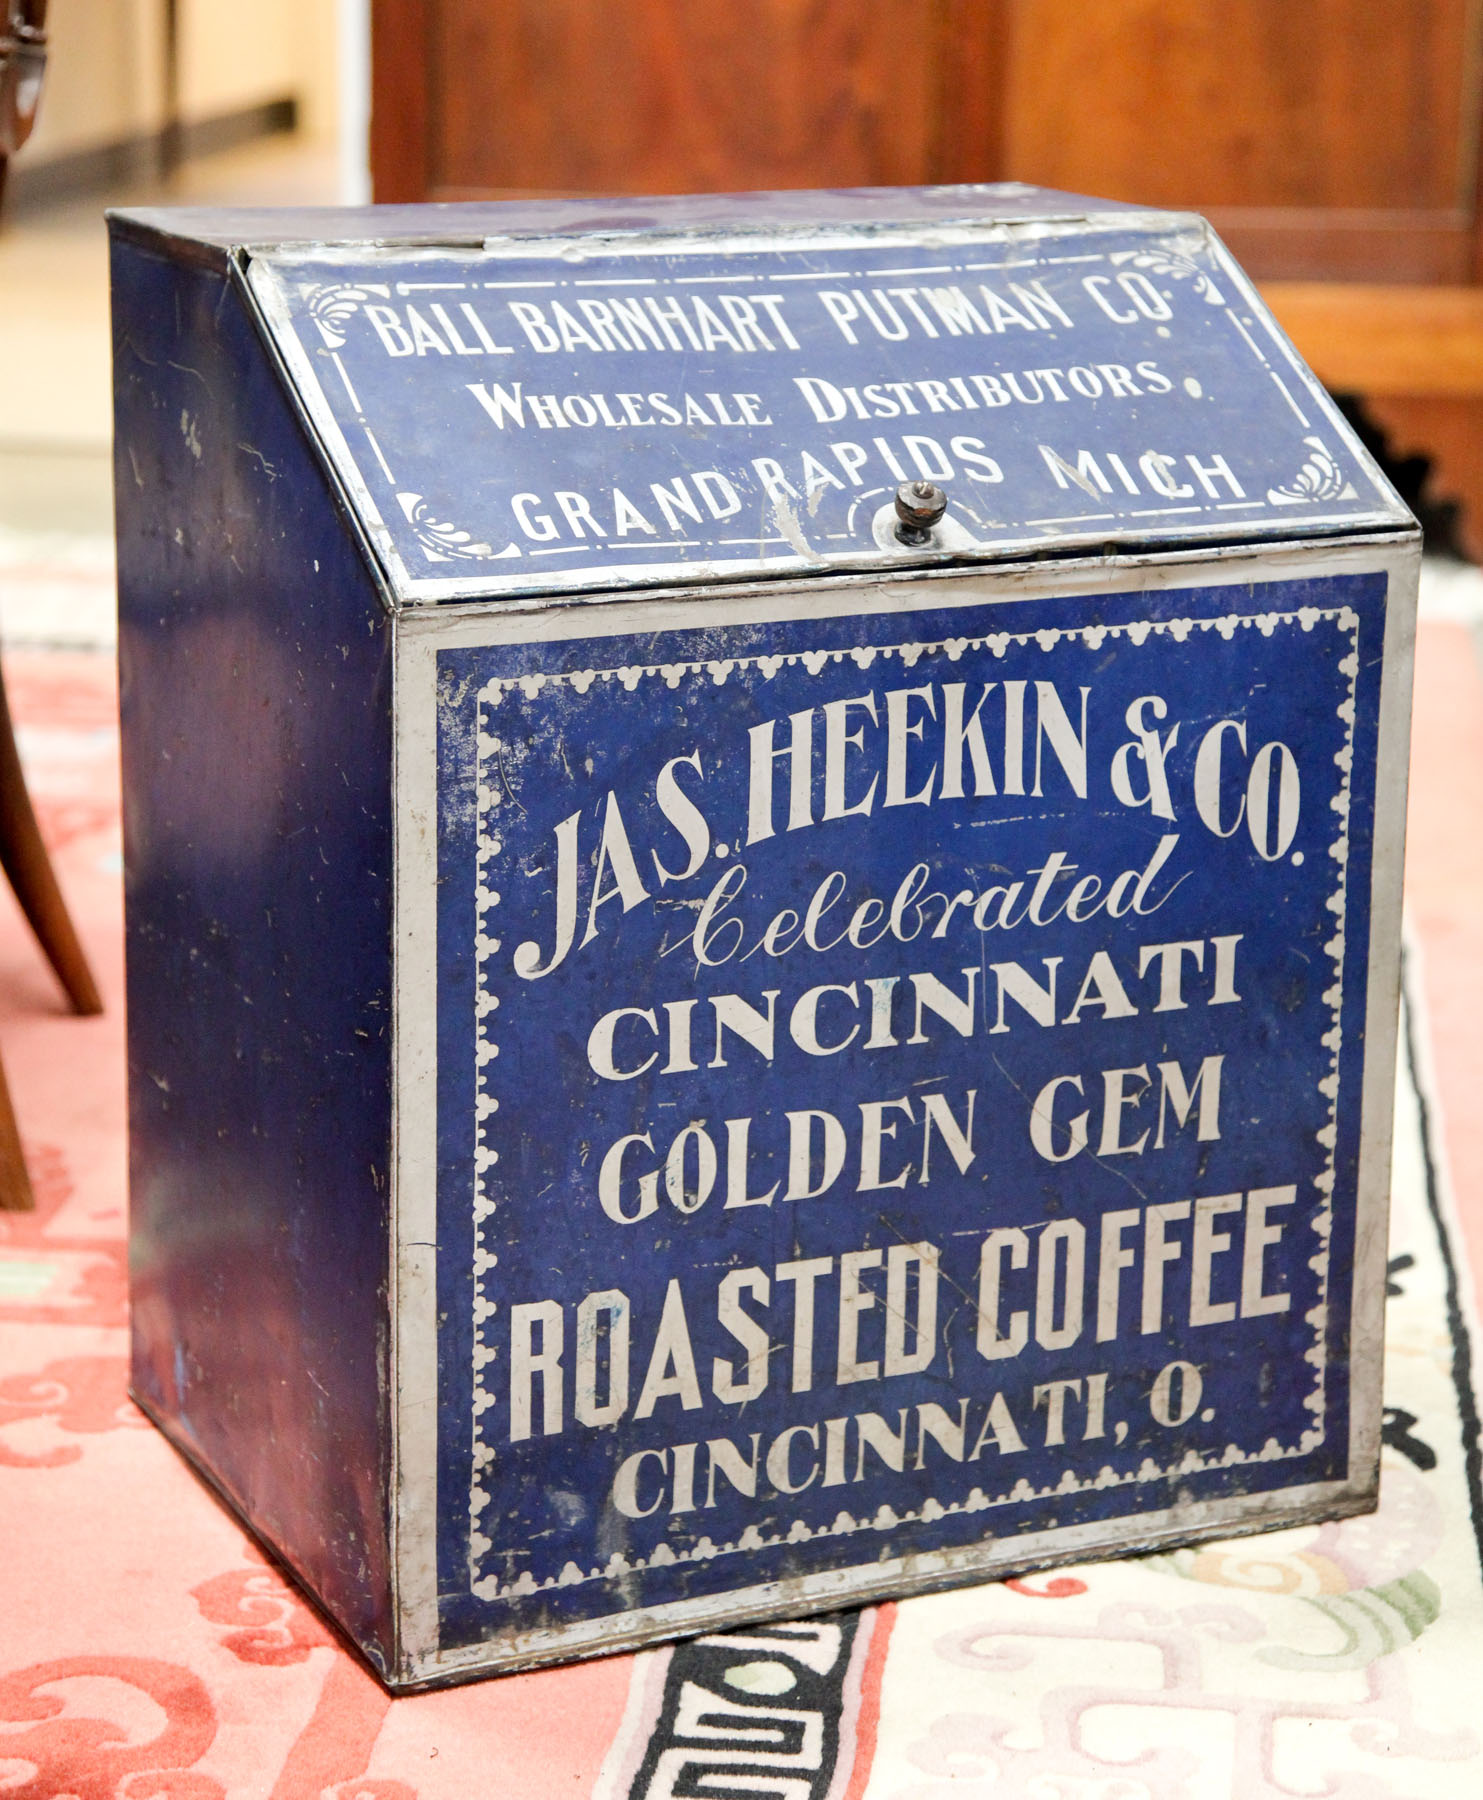 BALL BARNHART PUTMAN CO.
WHOLESALE DISTRIBUTORS.
GRAND RAPIDS MICH
JAS. HEEKIN & CO.
Celebrated
CINCINNATI
GOLDEN GEM
ROASTED COFFEE
CINCINNATI, O.